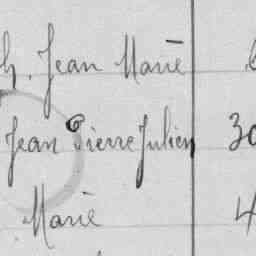 h. Jean Marie
Jean Pierre Julien 30
Marie 4